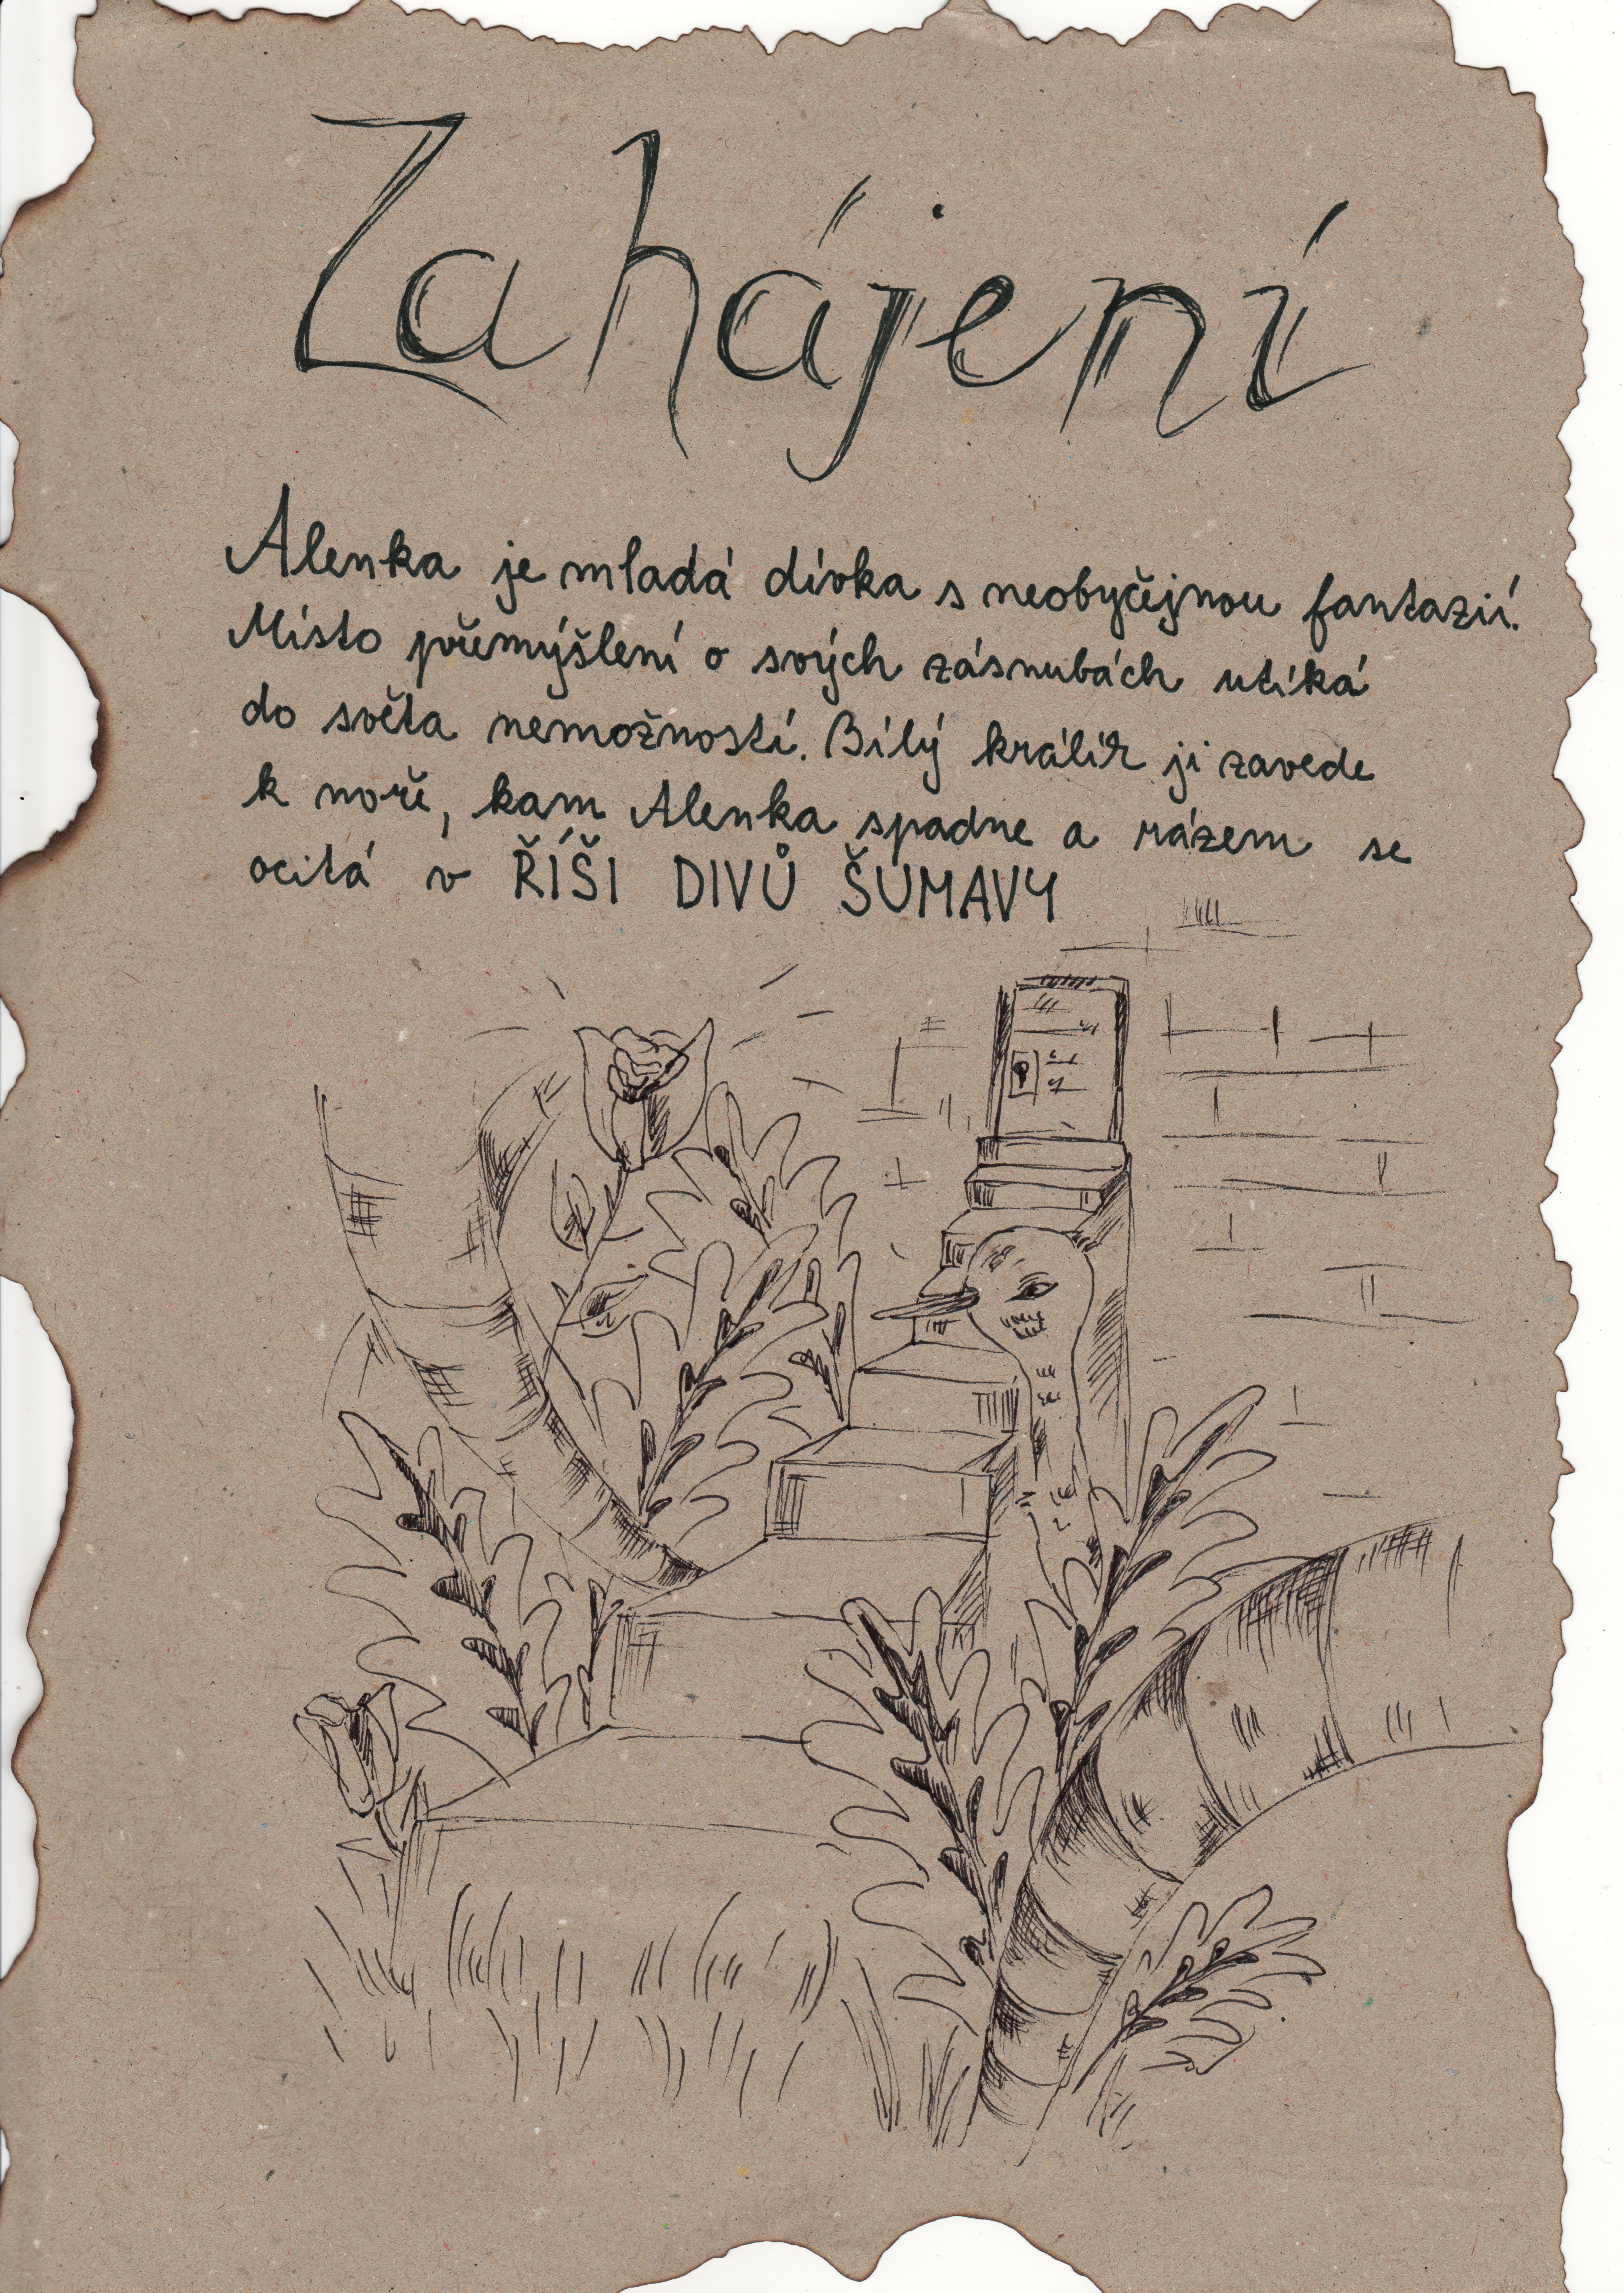 Zahájení
Alenka je mladá dívka s neobyčejnou fantazií.
Místo přemýšlení o svých zásnubách utíká
do světa nemožností. Bílý králík ji zavede
k noře, kam Alenka spadne a rázem se
ocitá v ŘÍŠI DIVŮ ŠUMAVY